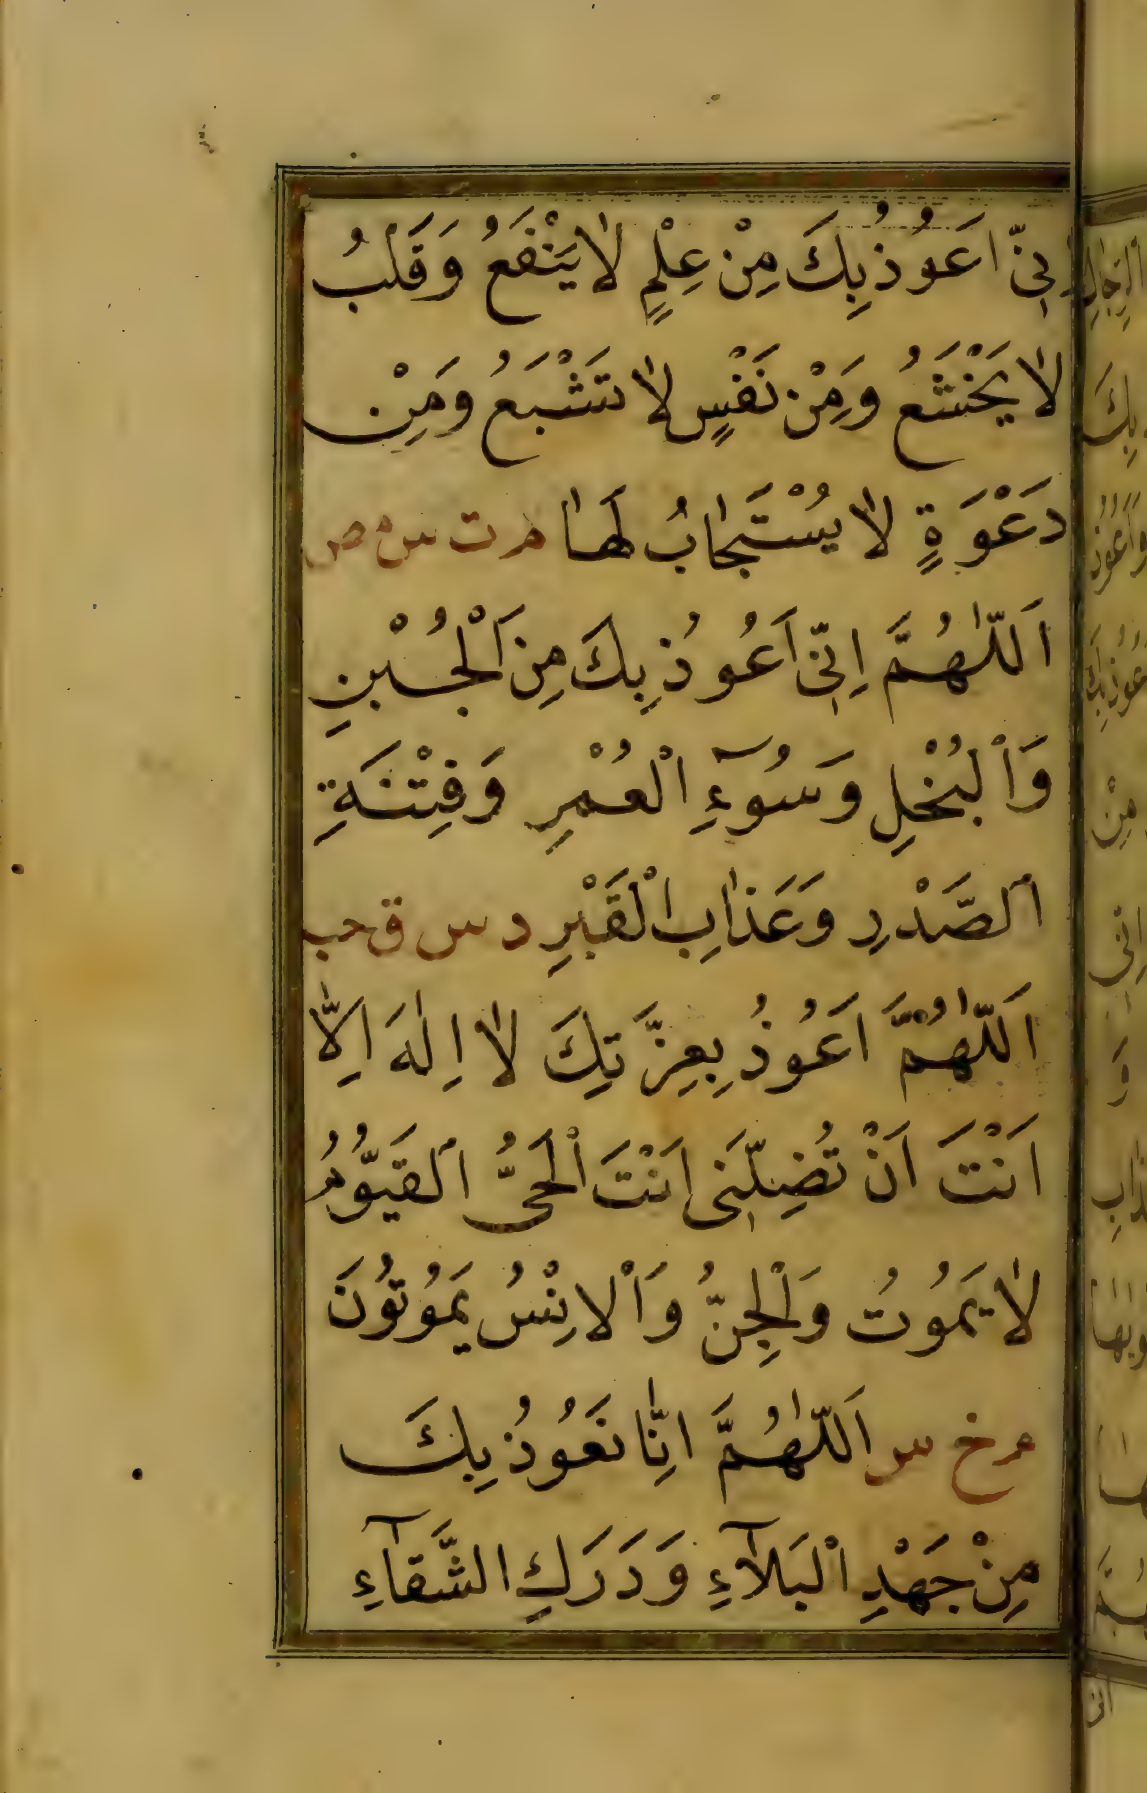 اِنِّى اَعُوذُ بِكَ مِنْ عِلْمٍ لٰا يَنْفَعُ وَقَلْبُ
لٰا يَخْشَعُ وَمِنْ نَفْسٍ لٰا تَشْبَعُ وَمِنْ
دَعْوَةٍ لٰا يُسْتَجٰابُ لَهٰا م ت س مص
اَللّٰهُمَّ اِنِّى اَعُوذُ بِكَ مِنَ الْجُبْنِ
وَالْبُخْلِ وَسُوٓءِ الْعُمْرِ وَفِتْنَةِ
الصَّدْرِ وَعَذٰابِ الْقَبْرِ د س ق حب
اَللّٰهُمَّ اَعُوذُ بِعِزَّتِكَ لٰا اِلٰهَ اِلّٰا
اَنْتَ اَنْ تُضِلَّنِى اَنْتَ الْحَىُّ الْقَيُّومُ
لٰا يَمُوتُ وَالْجِنُّ وَالْاِنْسُ يَمُوتُونَ
م خ س اَللّٰهُمَّ اِنّٰا نَعُوذُ بِكَ
مِنْ جَهْدِ الْبَلَآءِ وَدَرَكِ الشَّقَآءِ